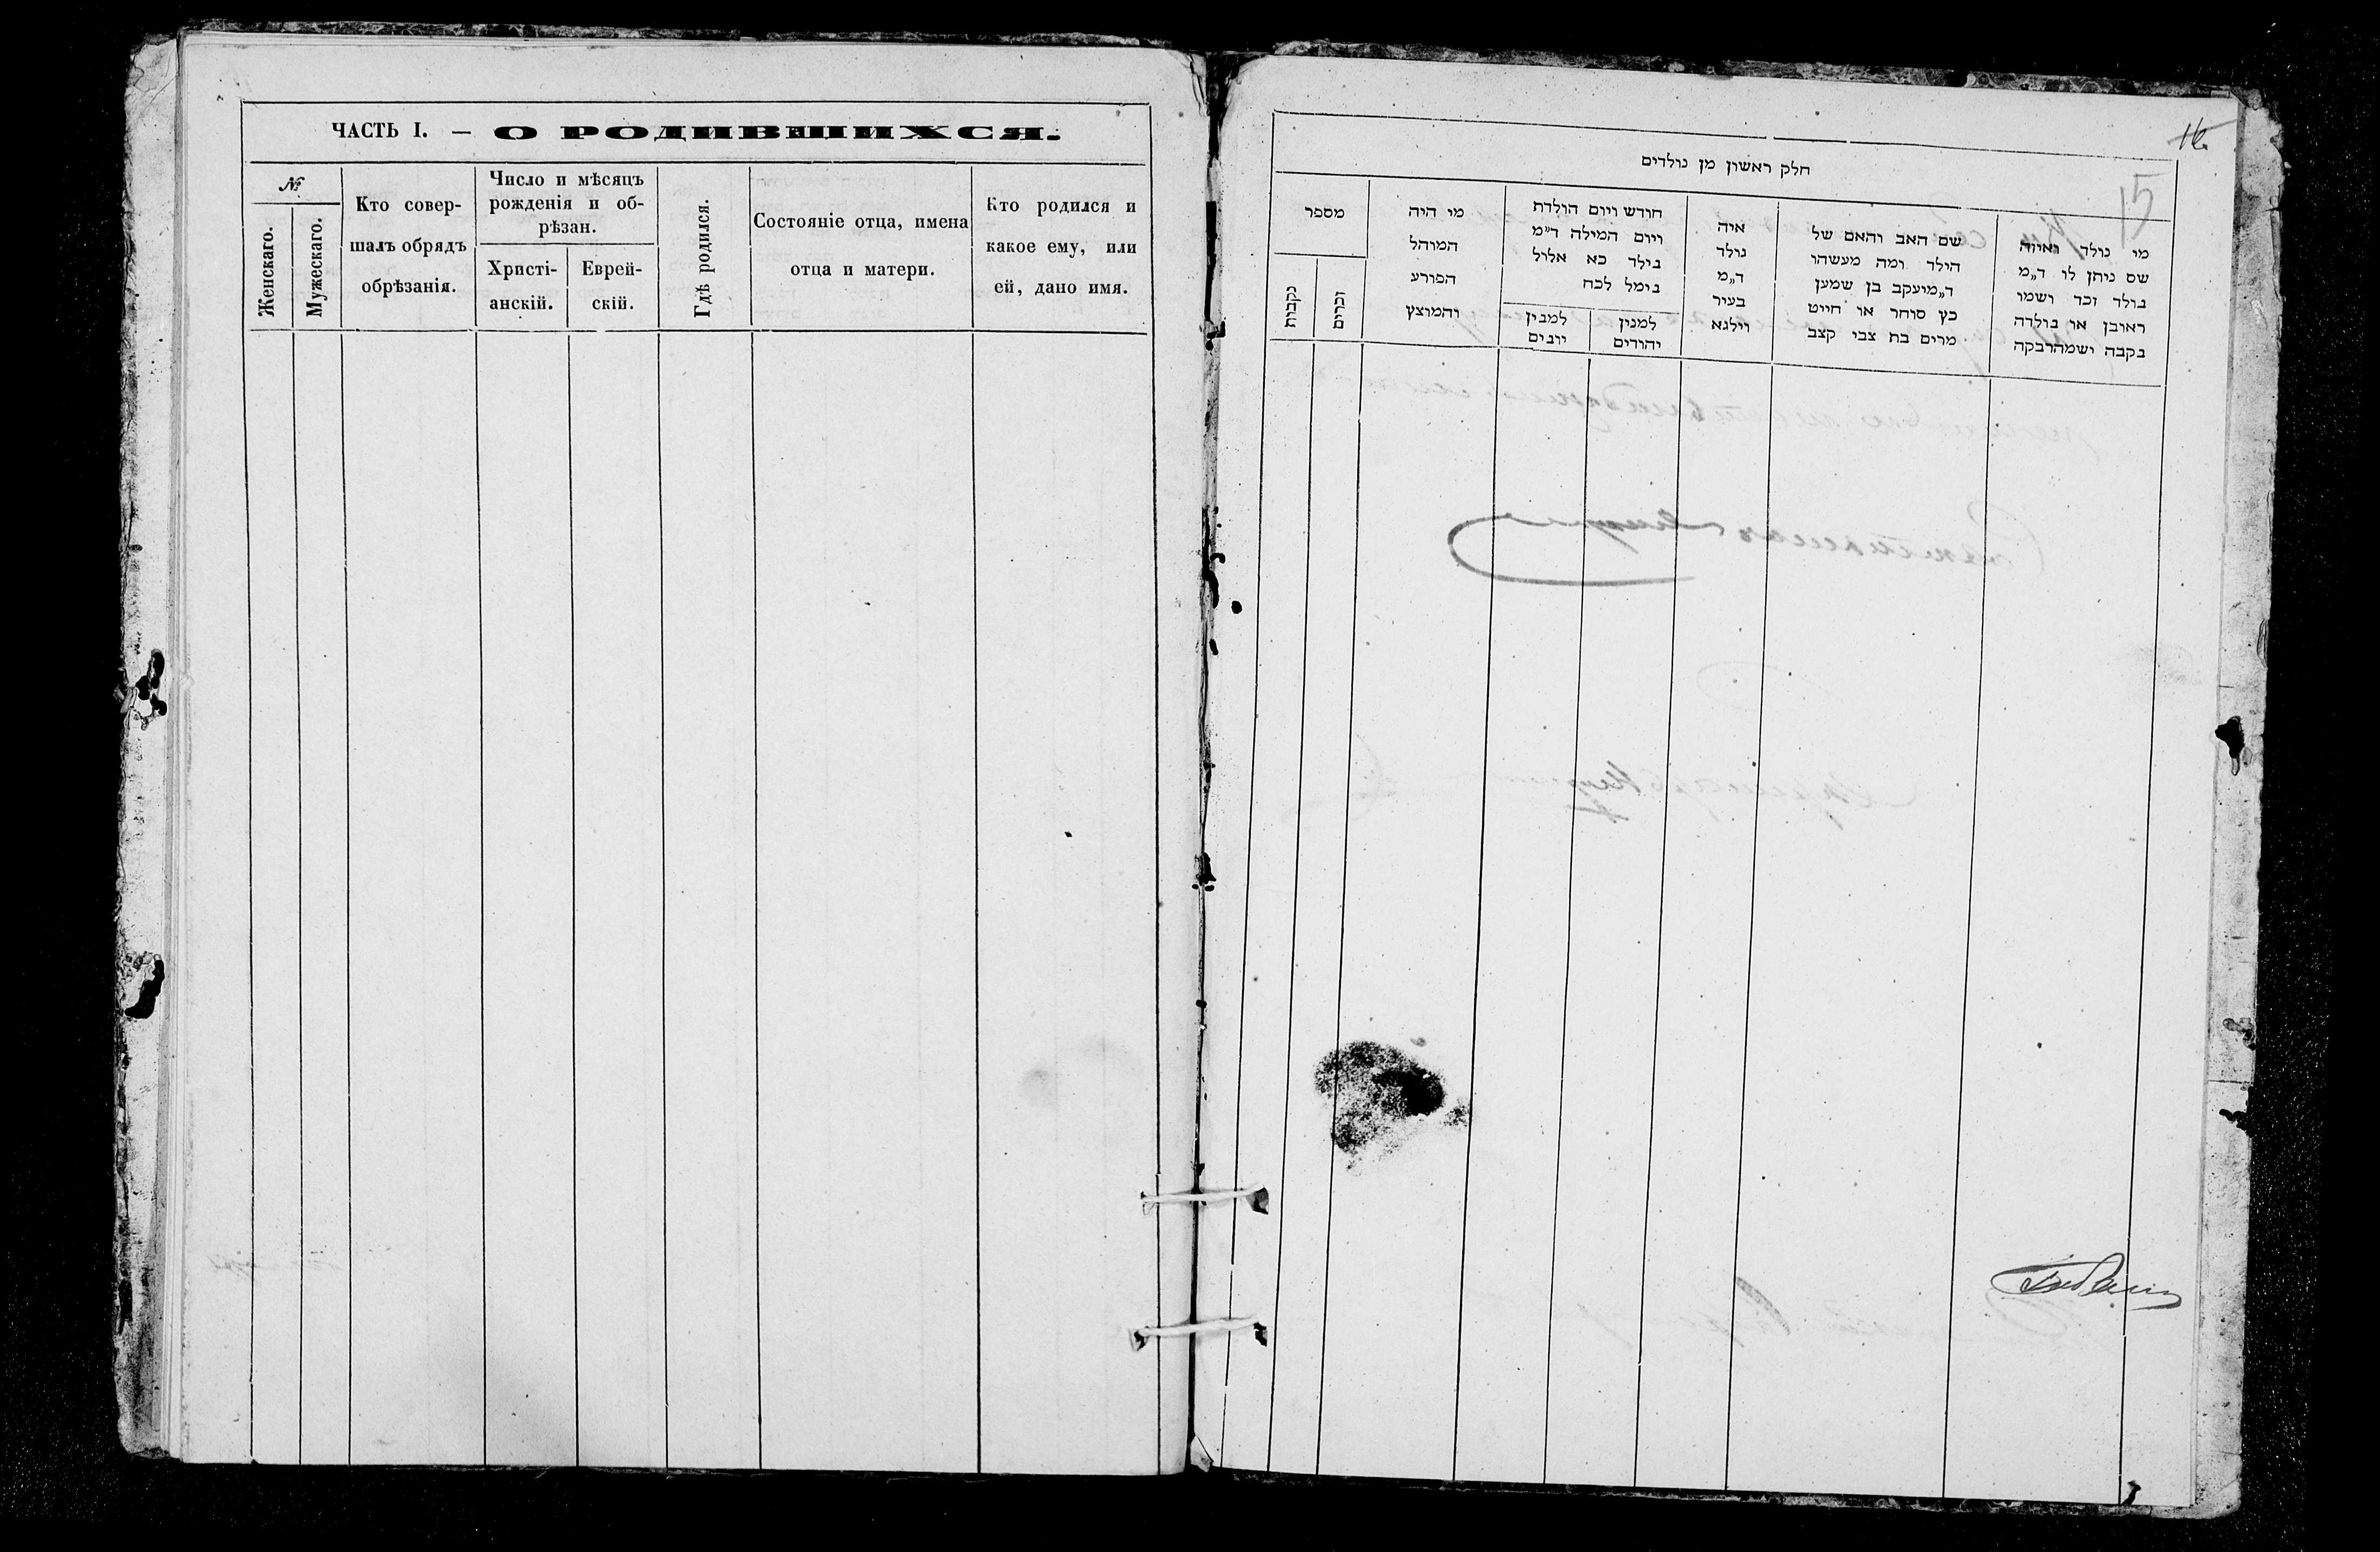 ЧАСТЬ I. — О РОДИВШИХСЯ.
№
Женскаго.
Мужескаго.
Кто совер-
шалъ обрядъ
обрѣзанія.
Число и мѣсяцъ
рожденія и об-
рѣзан.
Христі-
анскій.
Еврей-
скій.
Гдѣ родился.
Состояніе отца, имена
отца и матери.
Кто родился и
какое ему, или
ей, дано имя.
16.
15
חלק ראשון מן נולדים
מי נולד ואיזה
שם ניתן לו ד״מ
נולד זכר ושמו
ראובן או נולדה
נקבה ושמהרבקה
שם האב והאם של
הילד ומה מעשהו
ד״מיעקב בן שמעון
כץ סוחר או חייט
מרים בת צבי קצב
איה
נולד
ד״מ
בעיר
ווילנא
חודש ויום הולדת
ויום המילה ד״מ
נולד כא אלול
נימל לכח
למנין
יהודים
למנין
יונים
מי היה
המוהל
הפורע
והמוצץ
מספר
זכרים
נקבות